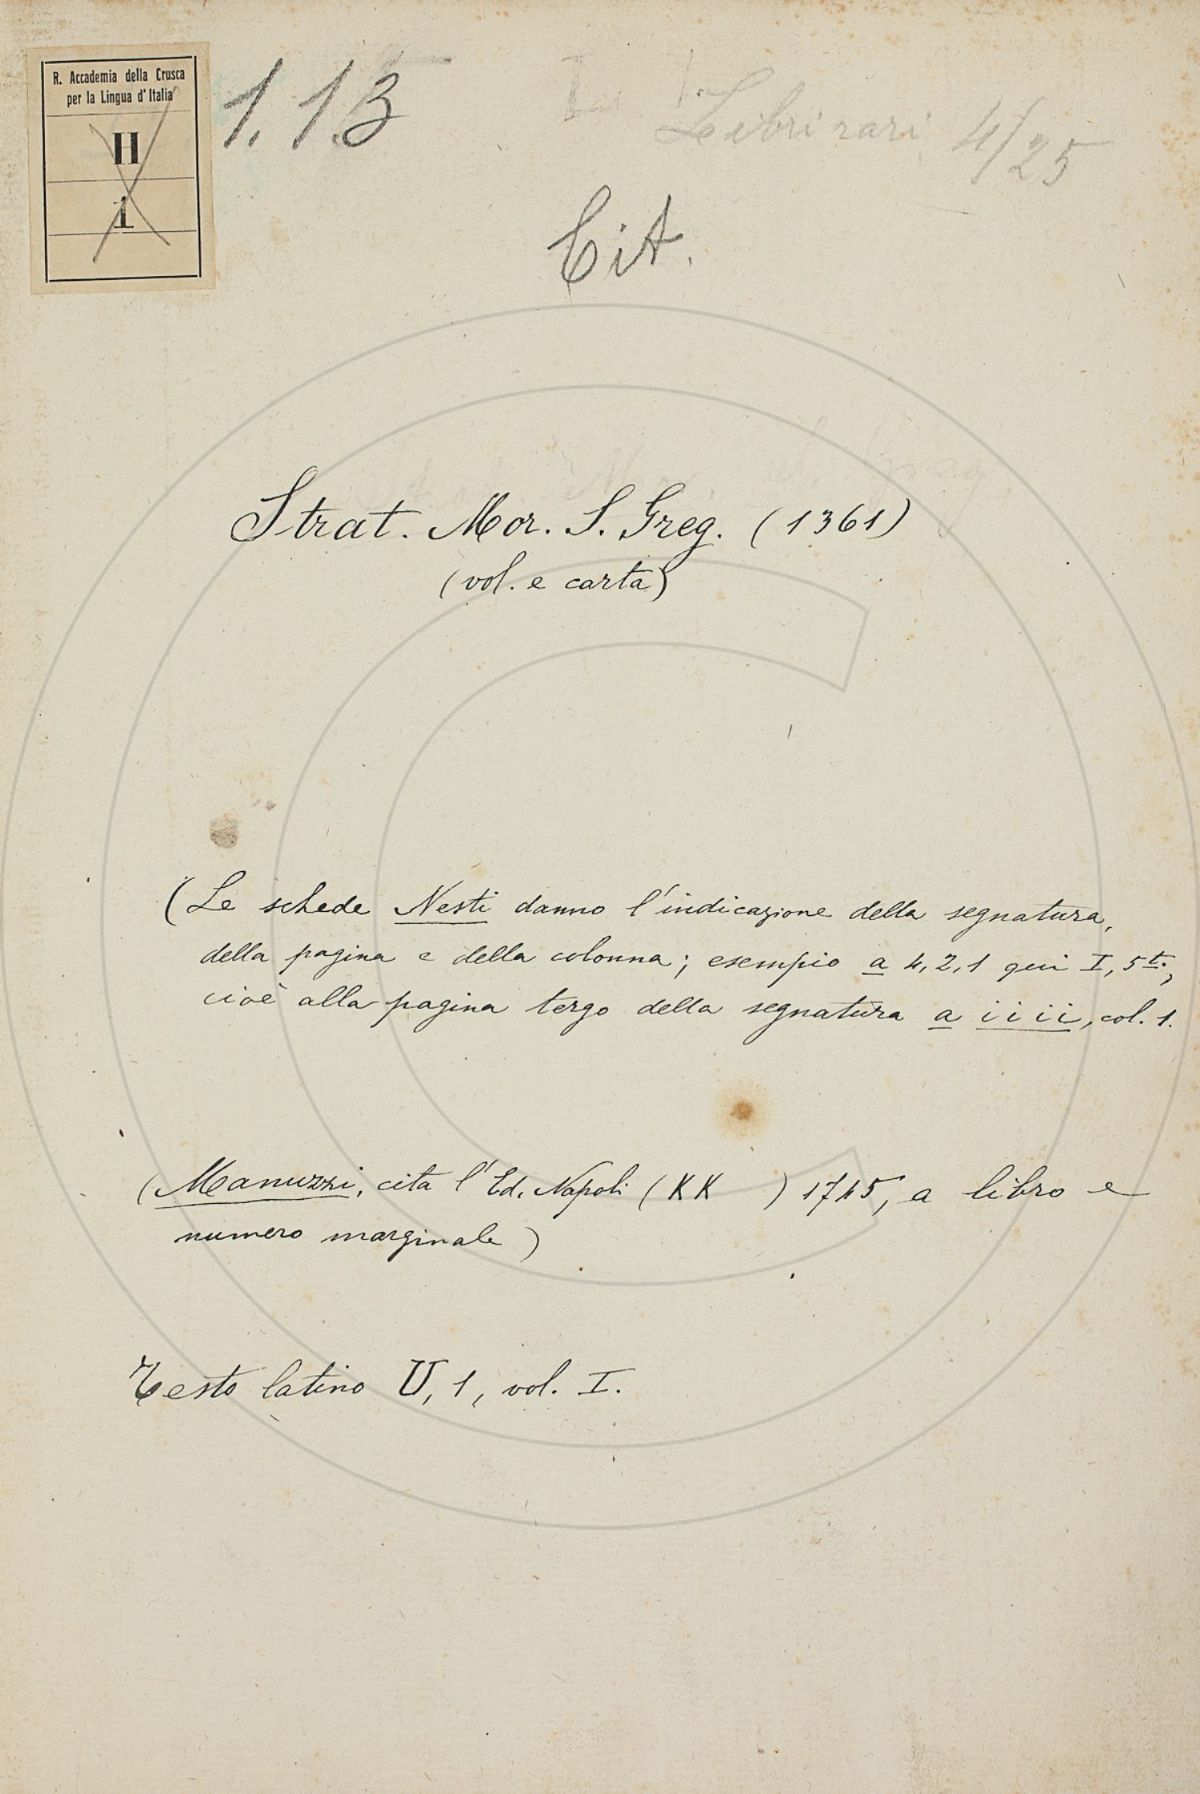 R. Accademia della Crusca
per la Lingua d'Italia
H
1
1.13
Libri rari 4/25
Cit.
Strat. Mor. S. Greg. (1361)
(vol. e carta)
(Le schede Nesti danno l'indicazione della segnatura,
della pagina e della colonna; esempio a 4, 2, 1 qui I, 5t.,
cioè alla pagina tergo della segnatura a iiii, col. 1.
(Manuzzi, cita l'Ed. Napoli (KK ) 1745, a libro e
numero marginale)
Testo latino U, 1, vol. I.